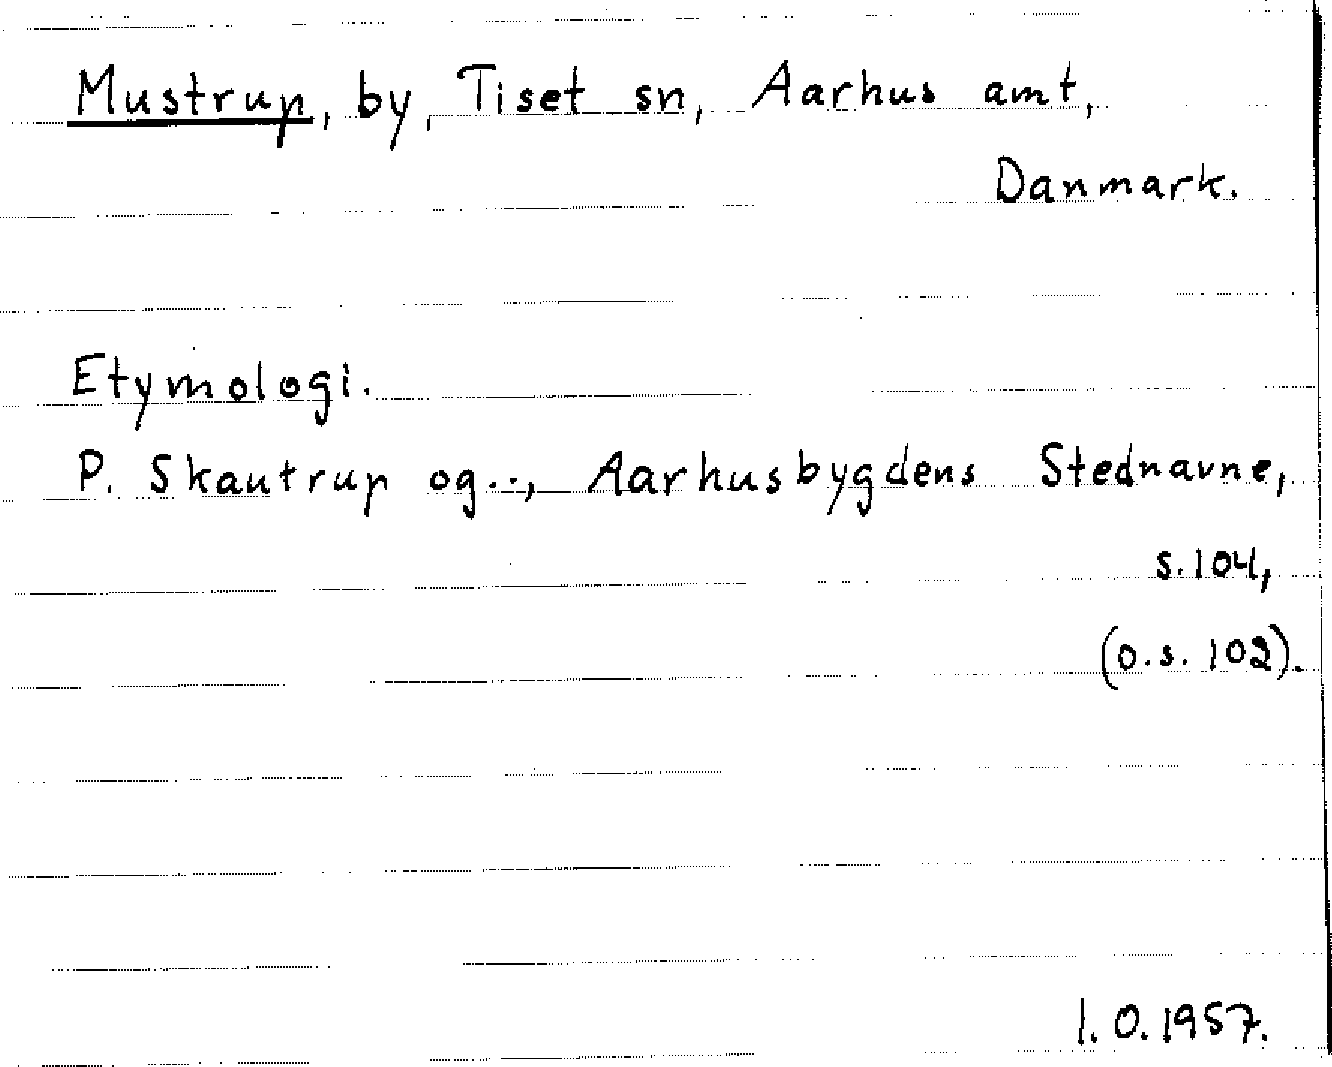 Mustrup, by, Tiset sn, Aarhus amt,
Danmark.
Etymologi.
P. Skautrup og.., Aarhusbygdens Stednavne,
s. 104,
(o.s. 102).
I. O. 1957.